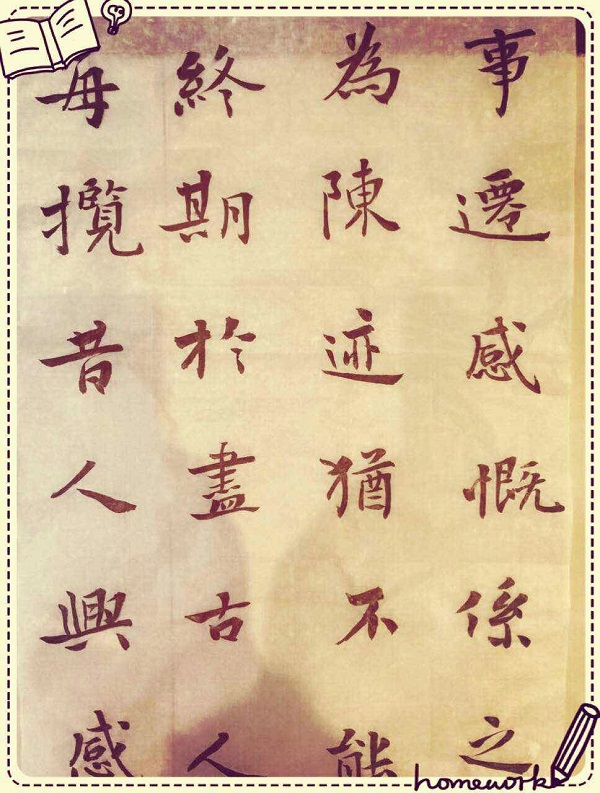 事遷感慨係之
為陳迹猶不能
終期於盡古人
每攬昔人興感
homework